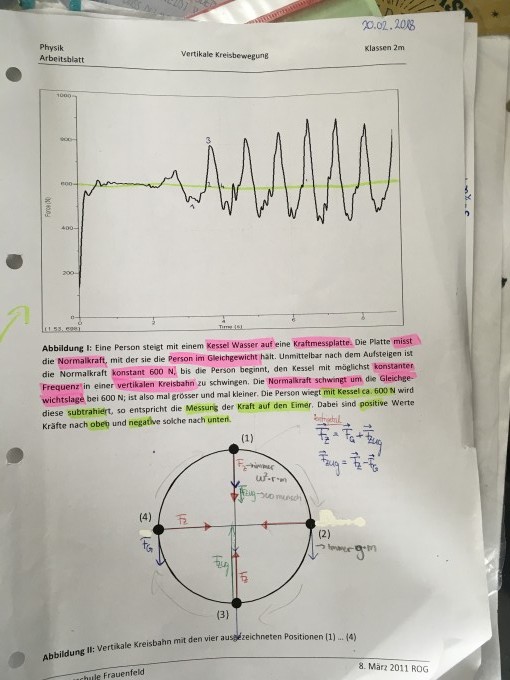 20.02.2018
Physik
Arbeitsblatt
Vertikale Kreisbewegung
Klassen 2m
1000
800
600
400
200
0
Force (N)
3
2
1
4
0
2
4
6
8
Time (s)
Abbildung I: Eine Person steigt mit einem Kessel Wasser auf eine Kraftmessplatte. Die Platte misst
die Normalkraft, mit der sie die Person im Gleichgewicht hält. Unmittelbar nach dem Aufsteigen ist
die Normalkraft konstant 600 N, bis die Person beginnt, den Kessel mit möglichst konstanter
Frequenz in einer vertikalen Kreisbahn zu schwingen. Die Normalkraft schwingt um die Gleichge-
wichtslage bei 600 N; ist also mal grösser und mal kleiner. Die Person wiegt mit Kessel ca. 600 N wird
diese subtrahiert, so entspricht die Messung der Kraft auf den Eimer. Dabei sind positive Werte
Kräfte nach oben und negative solche nach unten.
F_Z = F_G + F_Zug
F_Zug = F_Z - F_G
(1)
F_Z → immer
ω²·r·m
(4)
F_Z
(2)
F_G
→ immer g·m
F_Zug
F_Z
(3)
Abbildung II: Vertikale Kreisbahn mit den vier ausgezeichneten Positionen (1) ... (4)
schule Frauenfeld
8. März 2011 ROG